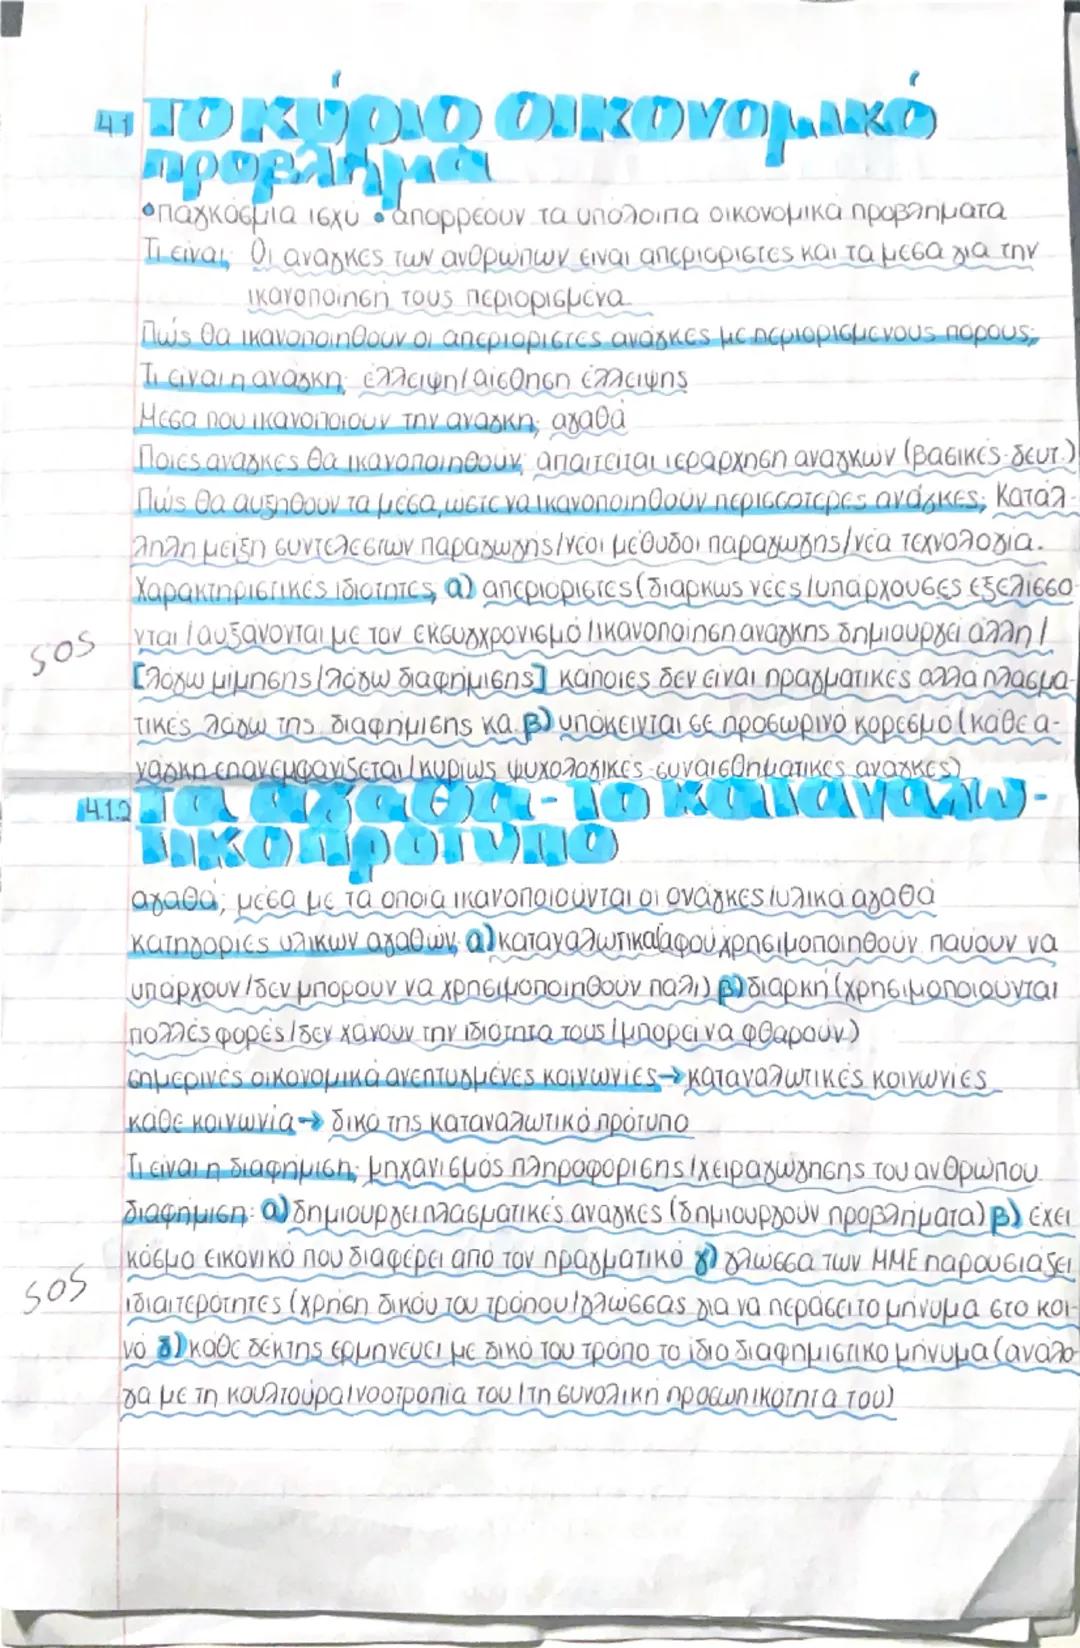 4.1 Το κύριο οικονομικό
πρόβλημα
•παγκόσμια ισχύ •απορρέουν τα υπόλοιπα οικονομικά προβλήματα
Τι είναι; Οι ανάγκες των ανθρώπων είναι απεριόριστες και τα μέσα για την
ικανοποίησή τους περιορισμένα
Πώς θα ικανοποιηθούν οι απεριόριστες ανάγκες με περιορισμένους πόρους;
Τι είναι η ανάγκη; έλλειψη/αίσθηση έλλειψης
Μέσα που ικανοποιούν την ανάγκη; αγαθά
Ποιες ανάγκες θα ικανοποιηθούν; απαιτείται ιεράρχηση αναγκών (βασικές-δευτ.)
Πώς θα αυξηθούν τα μέσα, ώστε να ικανοποιηθούν περισσότερες ανάγκες; Κατάλ-
ληλη μείξη συντελεστών παραγωγής/νέοι μέθοδοι παραγωγής/νέα τεχνολογία.
Χαρακτηριστικές ιδιότητες; α) απεριόριστες (διαρκώς νέες/υπάρχουσες εξελίσσο-
νται/αυξάνονται με τον εκσυγχρονισμό/ικανοποίηση ανάγκης δημιουργεί άλλη/
SOS
[λόγω μίμησης/λόγω διαφήμισης] κάποιες δεν είναι πραγματικές αλλά πλασμα-
τικές λόγω της διαφήμισης κα. β) υπόκεινται σε προσωρινό κορεσμό (κάθε α-
νάγκη επανεμφανίζεται/κυρίως ψυχολογικές-συναισθηματικές ανάγκες)
4.1.2 Τα αγαθά - Το καταναλω-
τικό πρότυπο
αγαθά; μέσα με τα οποία ικανοποιούνται οι ανάγκες/υλικά αγαθά
κατηγορίες υλικών αγαθών; α) καταναλωτικά (αφού χρησιμοποιηθούν παύουν να
υπάρχουν/δεν μπορούν να χρησιμοποιηθούν πάλι) β) διαρκή (χρησιμοποιούνται
πολλές φορές/δεν χάνουν την ιδιότητα τους/μπορεί να φθαρούν)
σημερινές οικονομικά ανεπτυγμένες κοινωνίες → καταναλωτικές κοινωνίες
κάθε κοινωνία → δικό της καταναλωτικό πρότυπο
Τι είναι η διαφήμιση; μηχανισμός πληροφόρισης/χειραγώγησης του ανθρώπου
διαφήμιση: α) δημιουργεί πλασματικές ανάγκες (δημιουργούν προβλήματα) β) έχει
κόσμο εικονικό που διαφέρει από τον πραγματικό γ) γλώσσα των ΜΜΕ παρουσιάζει
SOS
ιδιαιτερότητες (χρήση δικού του τρόπου/γλώσσας για να περάσει το μήνυμα στο κοι-
νό δ) κάθε δέκτης ερμηνεύει με δικό του τρόπο το ίδιο διαφημιστικό μήνυμα (ανάλο-
γα με τη κουλτούρα/νοοτροπία του/τη συνολική προσωπικότητα του)